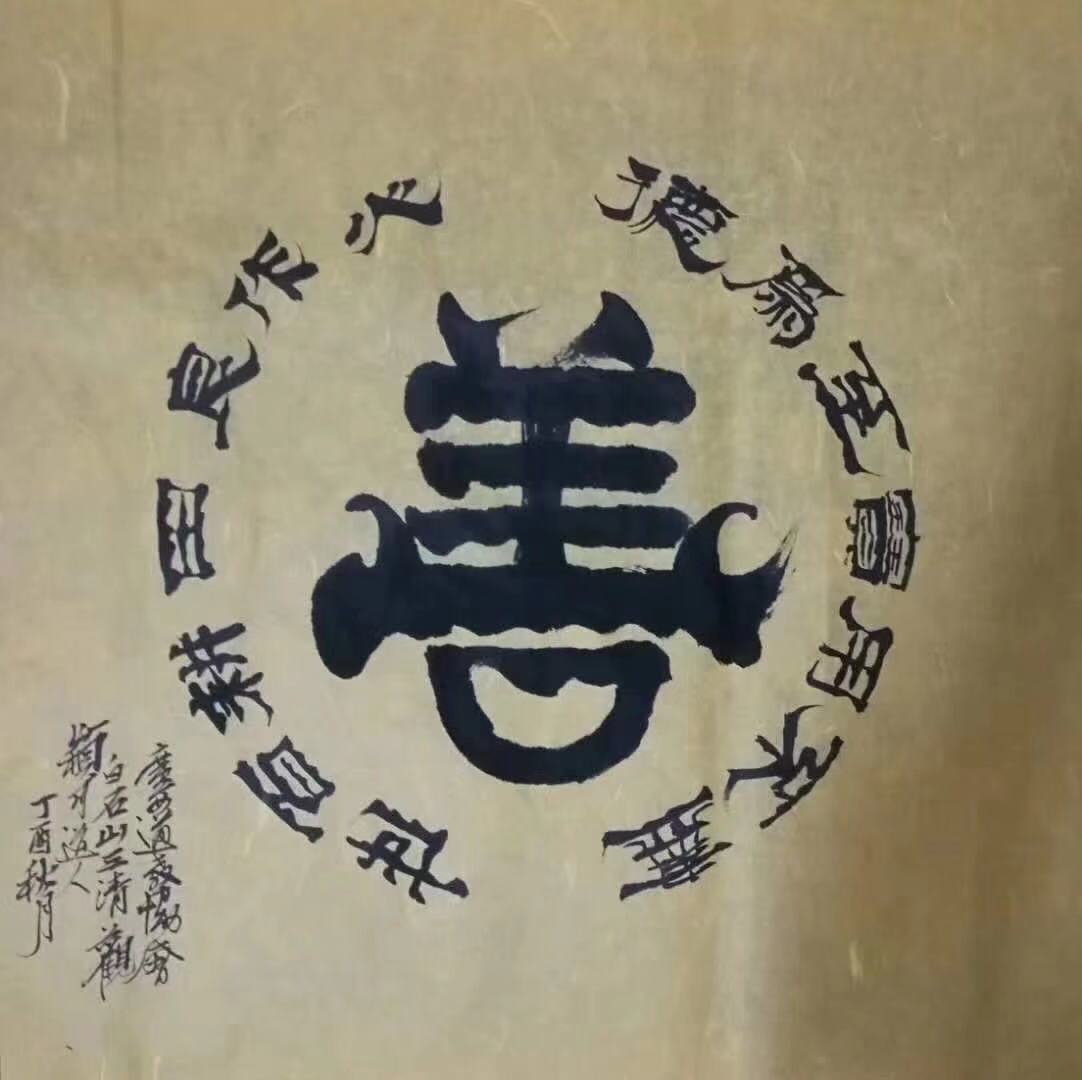 善
德為至寶用不盡
心作良田百世耕
廣西道教協會
白石山三清觀
道人
丁酉秋月